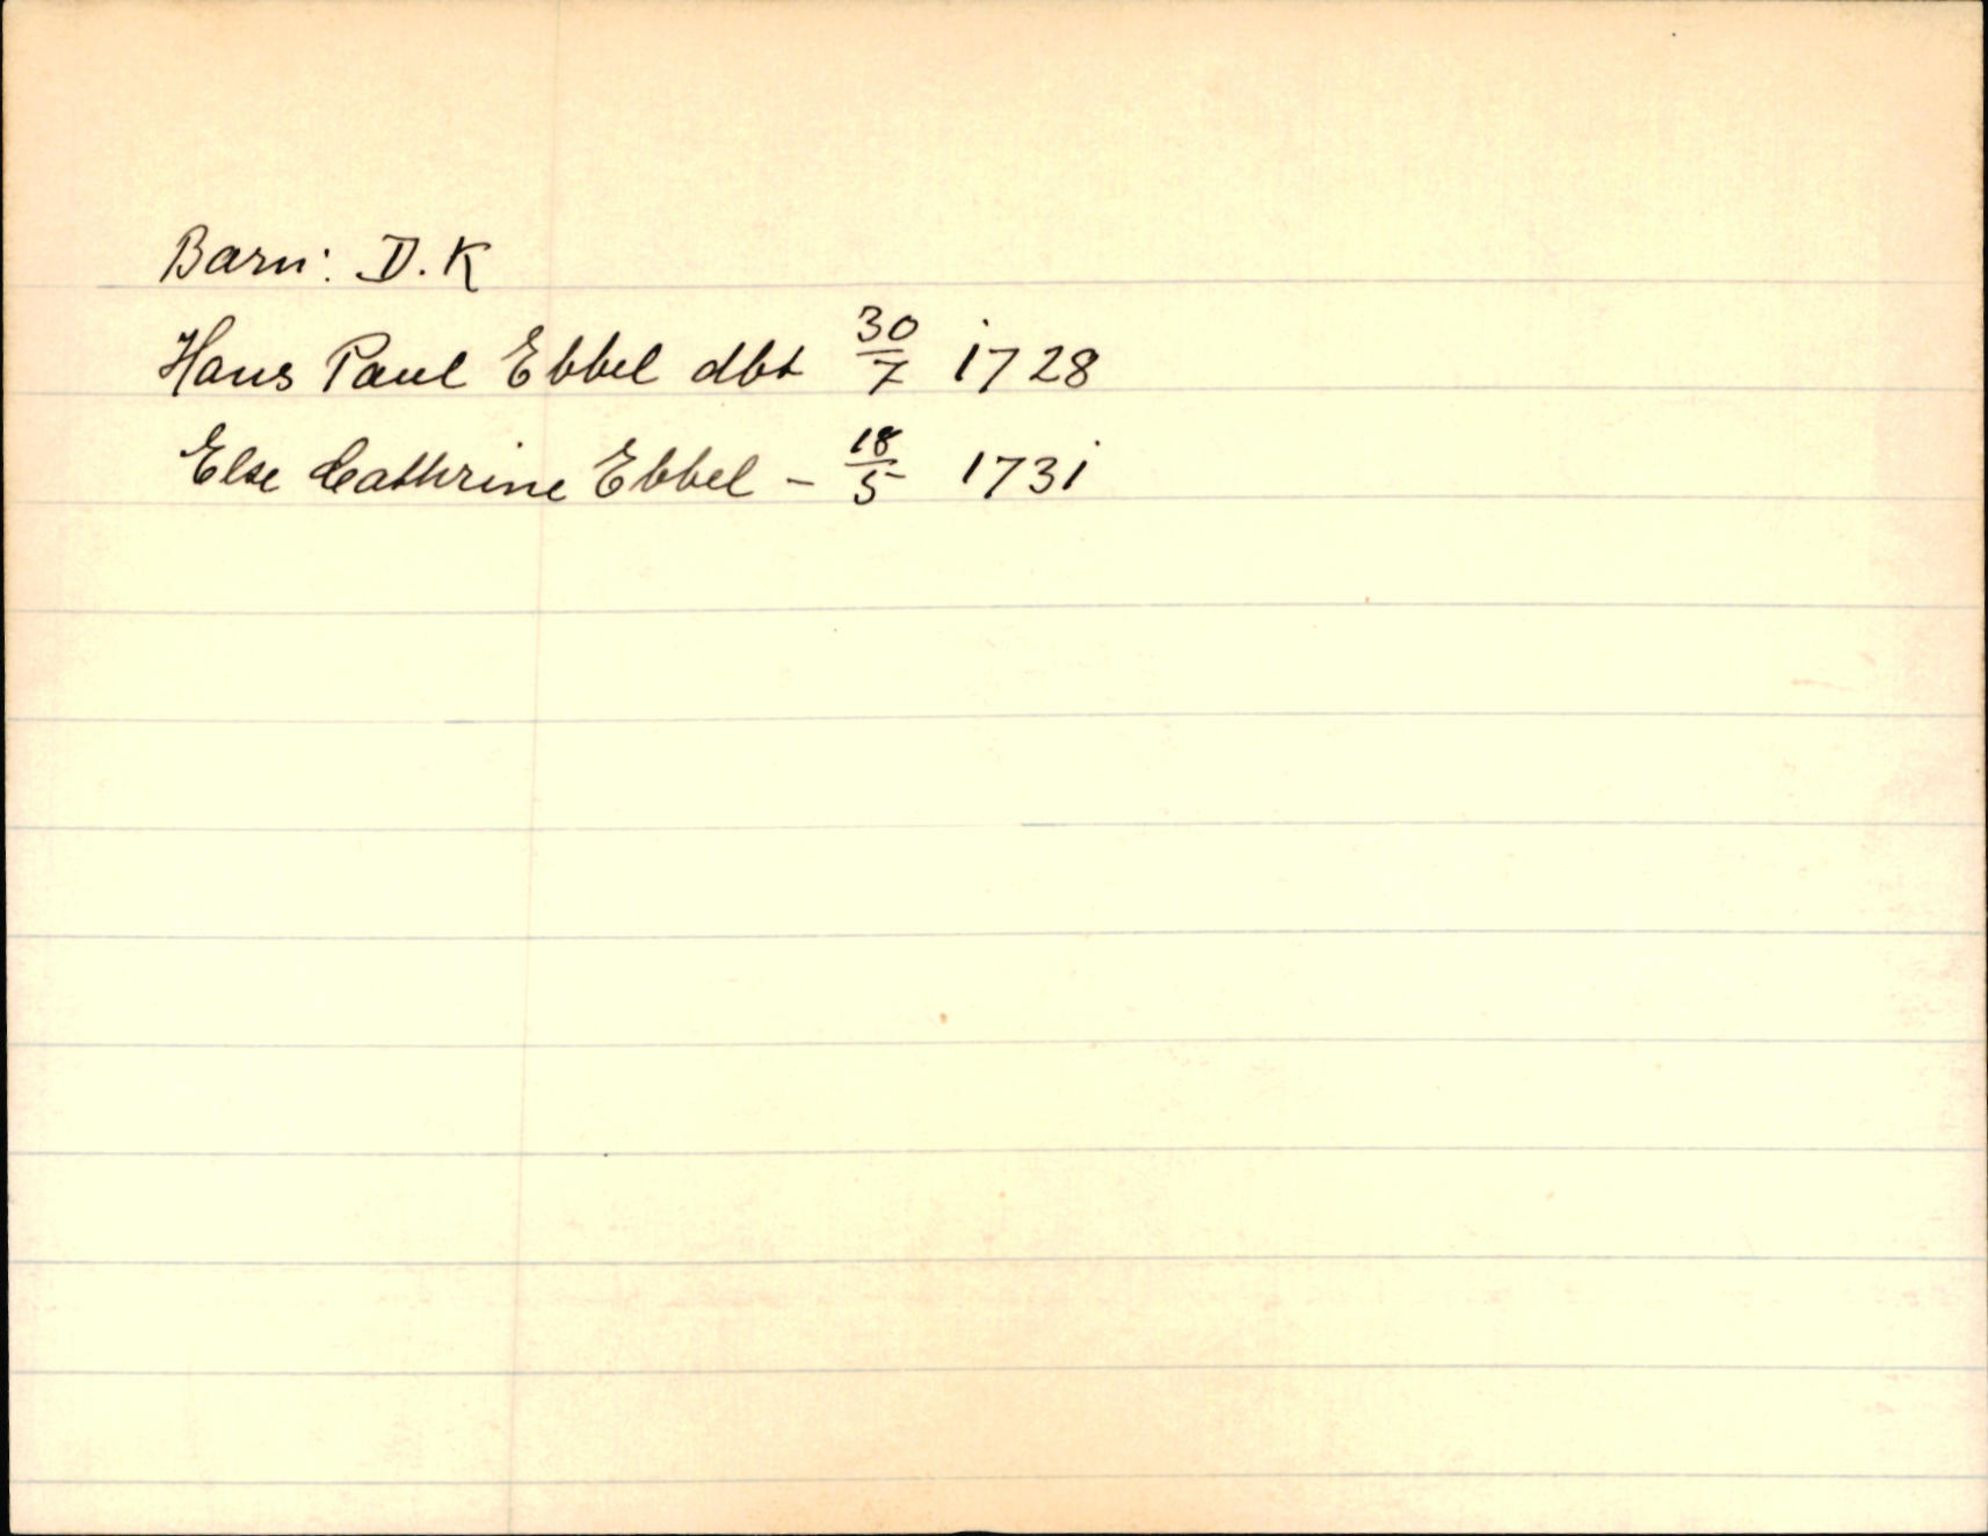 Barn: D.K
Hans Paul Ebbel dbt 30/7 1728
Else Cathrine Ebbel - 18/5 1731